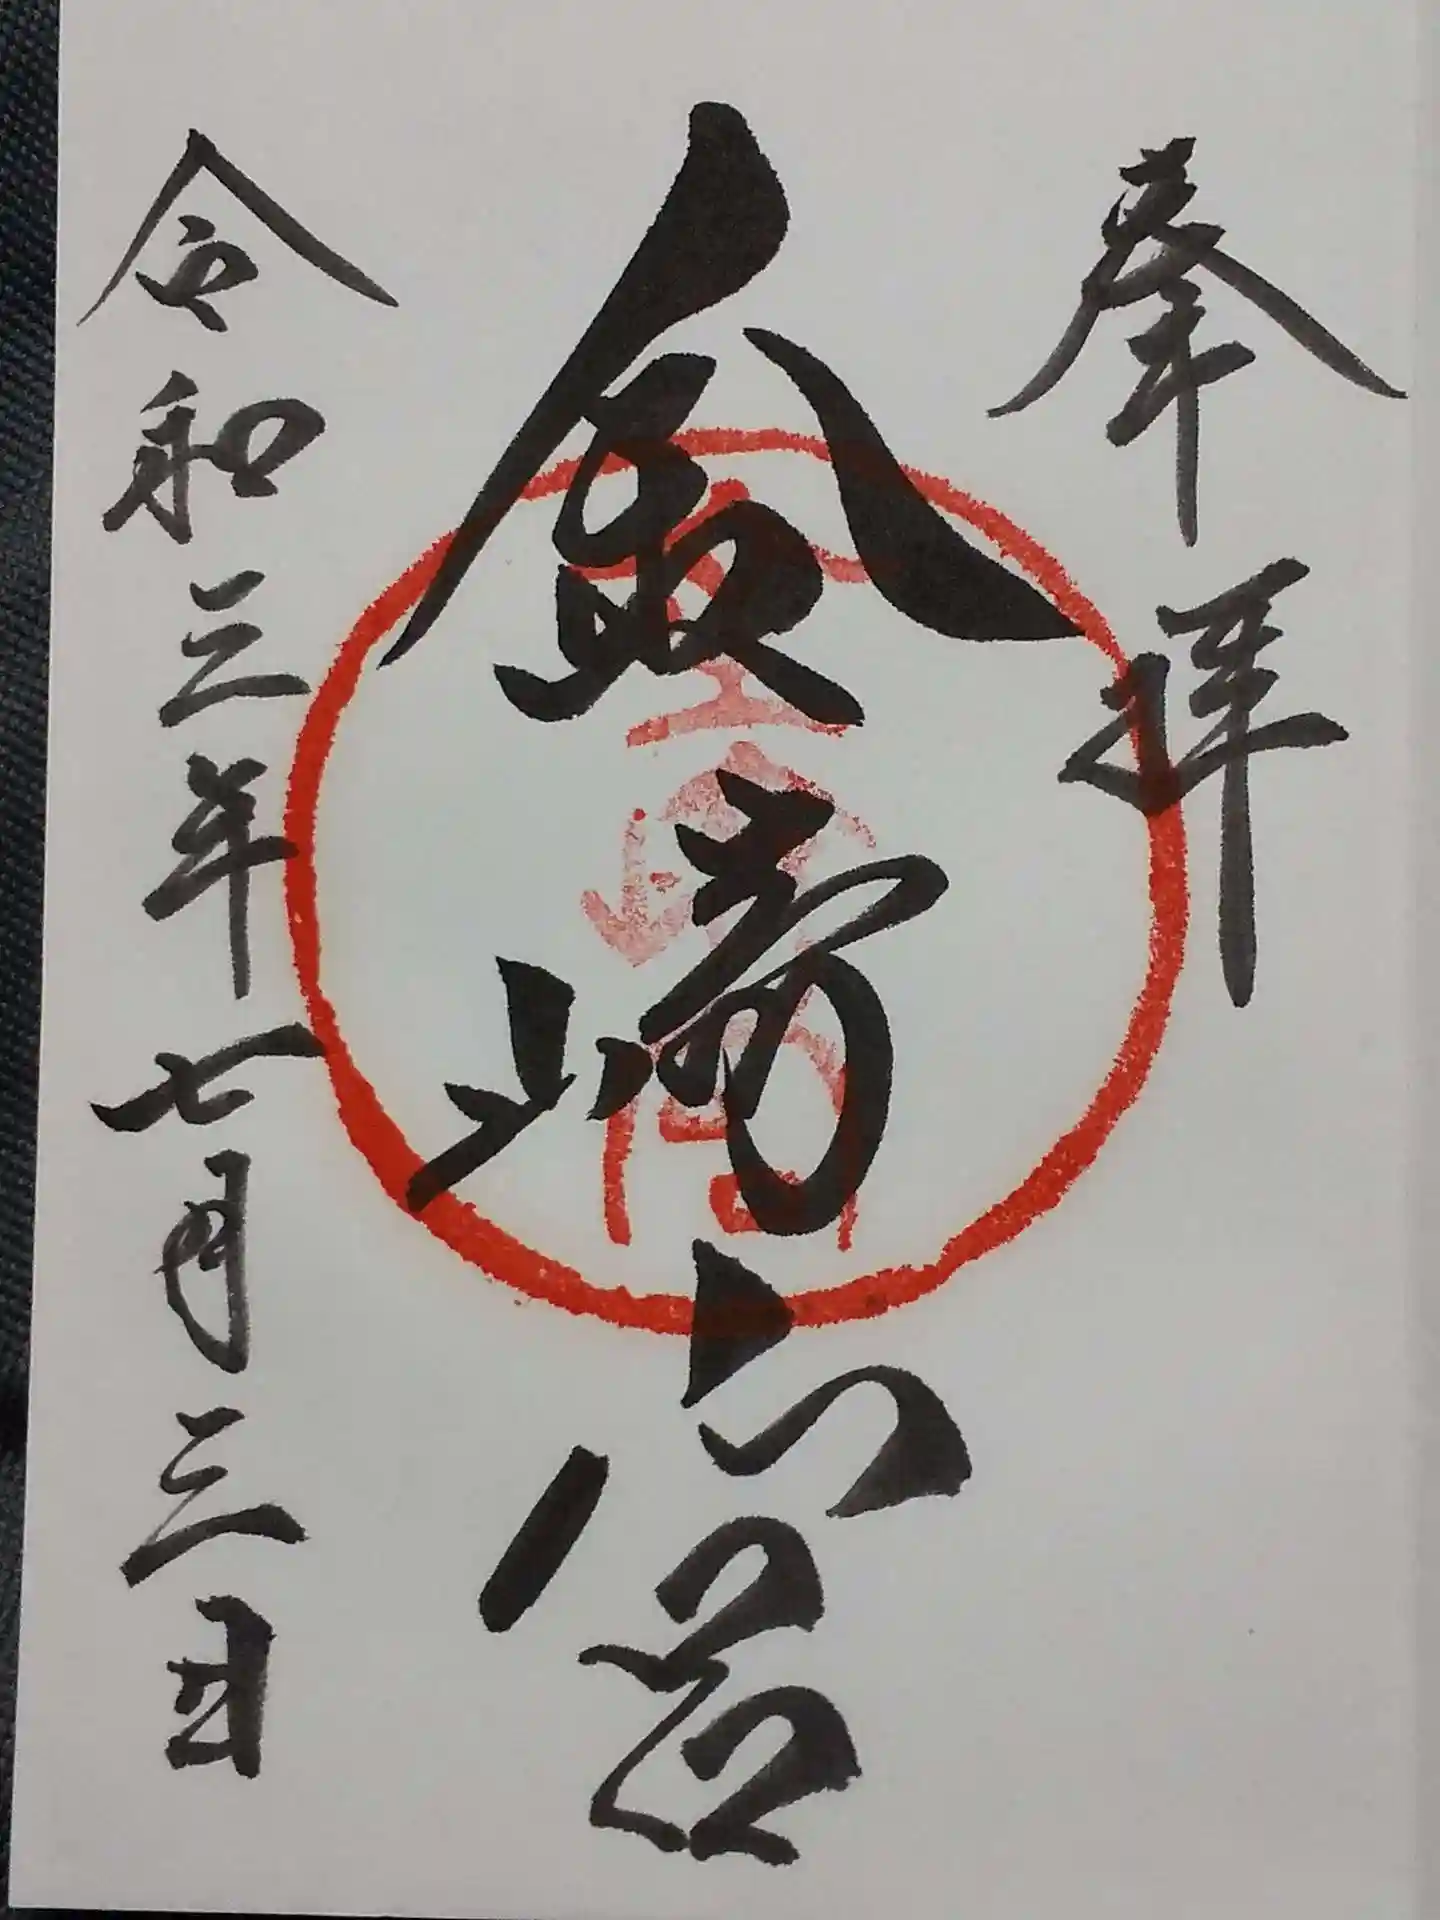 奉拝
金崎宮
令和三年七月三日